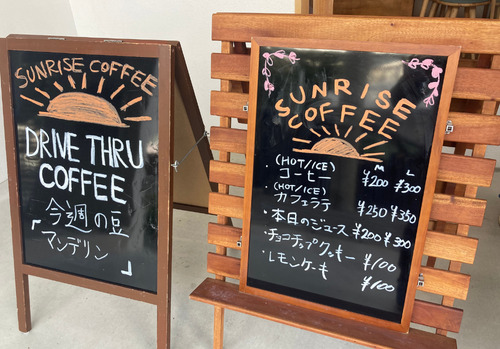 SUNRISE COFFEE
DRIVE THRU
COFFEE
今週の豆
「マンデリン」
SUNRISE
COFFEE
M L
・(HOT/ICE)
コーヒー ¥200 ¥300
・(HOT/ICE)
カフェラテ ¥250 ¥350
・本日のジュース ¥200 ¥300
・チョコチップクッキー ¥100
・レモンケーキ ¥100